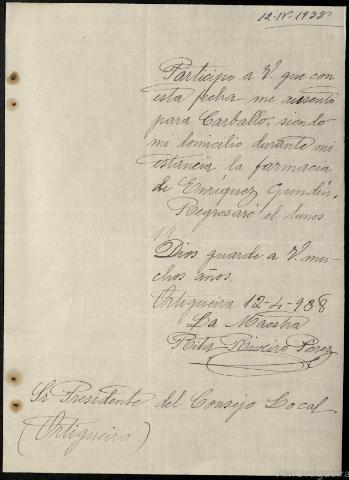 12-IV-1938
Participo a V. que con
esta fecha me ausento
para Carballo, siendo
mi domicilio durante mi
estancia la farmacia
de Enriquez Gundín.
Regresaré el lunes
Dios guarde a V. mu-
chos años.
Ortigueira 12-4-938
La Maestra
Rita Riveiro Pérez
Sr Presidente del Consejo Local
(Ortigueira)